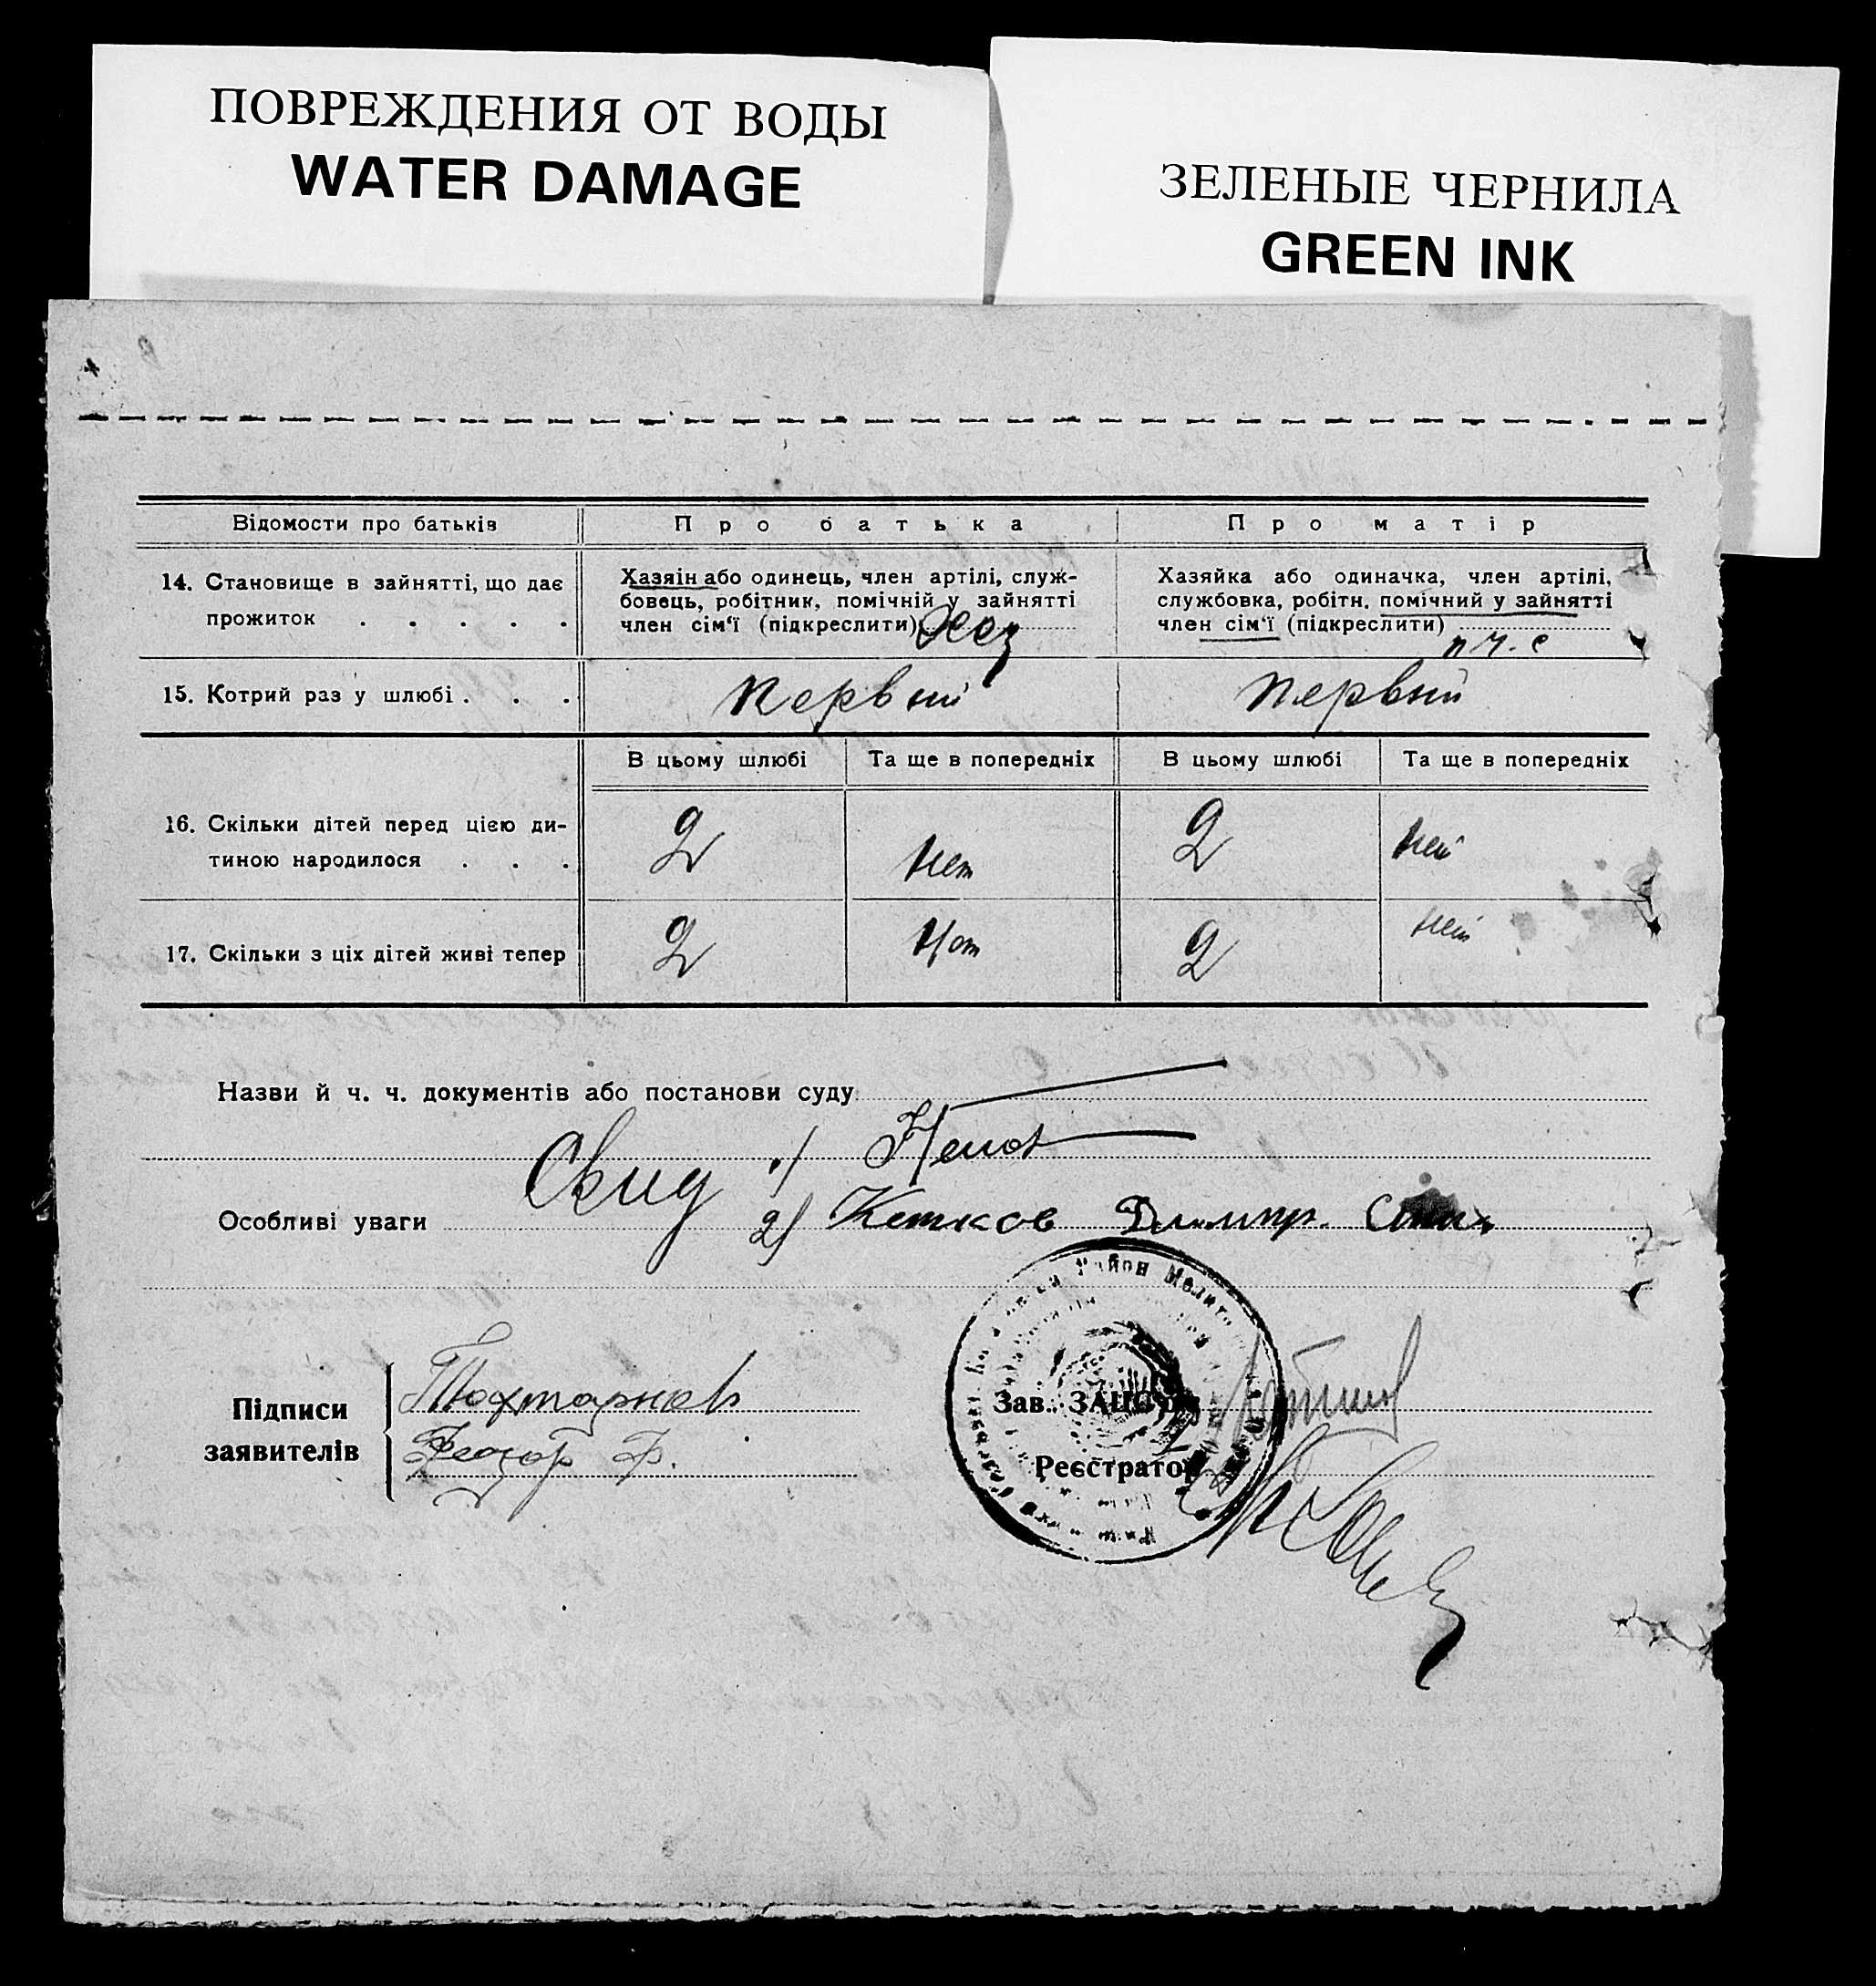 ПОВРЕЖДЕНИЯ ОТ ВОДЫ
WATER DAMAGE
ЗЕЛЕНЫЕ ЧЕРНИЛА
GREEN INK
Відомости про батьків
Про батька
Про матір
14. Становище в зайнятті, що дає
прожиток . . . . .
Хазяін або одинець, член артілі, служ-
бовець, робітник, помічній у зайнятті
член сім'ї (підкреслити) Хоз
Хазяйка або одиначка, член артілі,
службовка, робітн. помічний у зайнятті
член сім'ї (підкреслити)
п ч. с
15. Котрий раз у шлюбі . . .
первый
первый
В цьому шлюбі
Та ще в попередніх
В цьому шлюбі
Та ще в попередніх
16. Скільки дітей перед цією ди-
тиною народилося . . .
2
нет
2
нет
17. Скільки з ціх дітей живі тепер
2
нет
2
нет
Назви й ч. ч. документів або постанови суду
Свид 1)
Особливі уваги
2) Кетков Димитр.
Район
Підписи
заявителів
Федор Ф.
Зав. ЗАГСʼом
Реєстратор